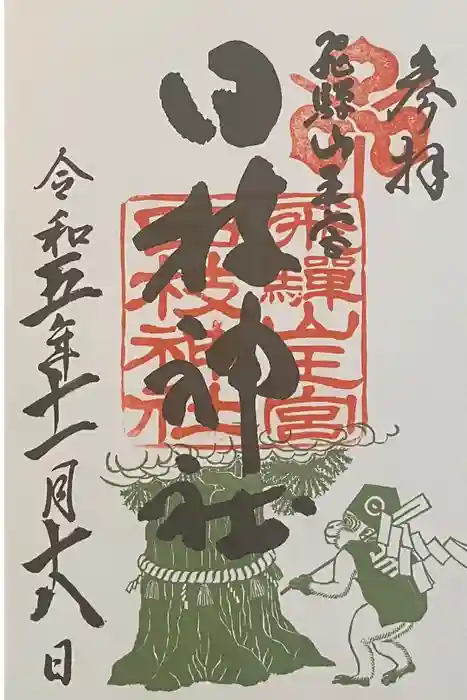 参拝
飛驒山王宮
日枝神社
飛驒山王宮
日枝神社
令和五年十一月十八日